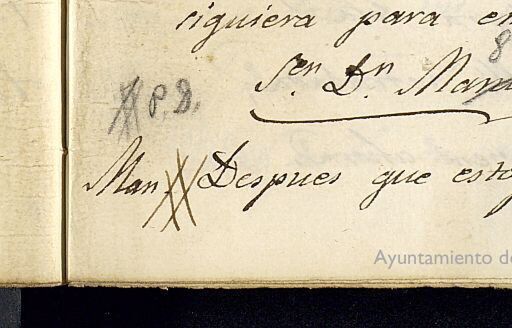 siguiera para en
8
Sen. Dn. Man
P. D.
Man. Despues que esto
Ayuntamiento de